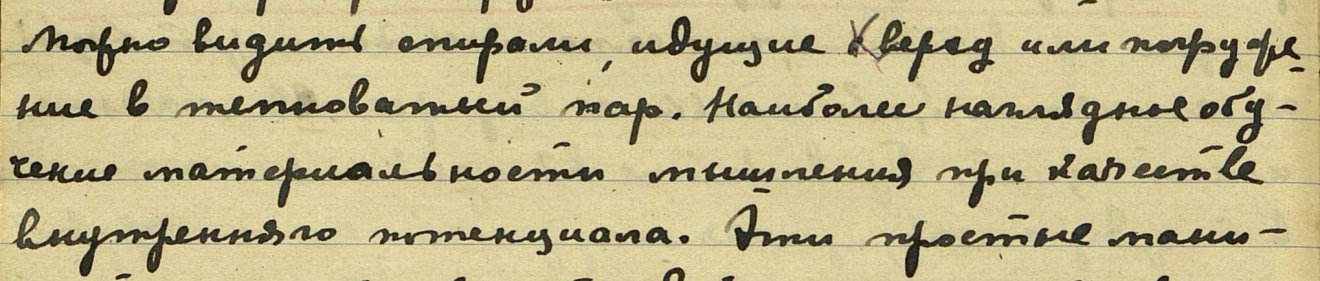 можно видить спирали, идущие вверед или погруже-
ние в тепловатый пар. Наиболее наглядное обу-
чение материальности мышления при качестве
внутренняго потенциала. Эти простые мани-